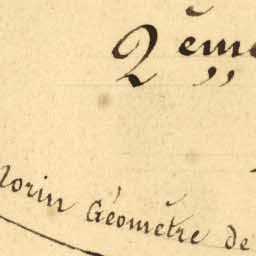 2 ème
orin Géomètre de